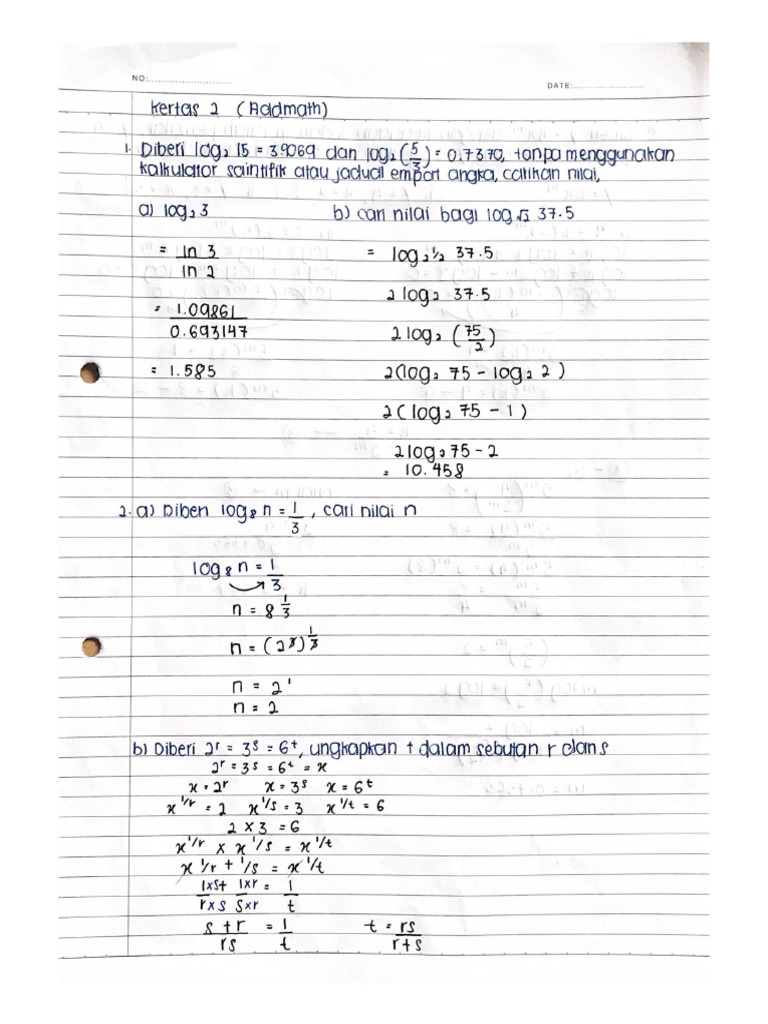 NO:
DATE:
Kertas 2 (Addmath)
1. Diberi log₂ 15 = 3.9069 dan log₂ (5/3) = 0.7370, tanpa menggunakan
kalkulator saintifik atau jadual empat angka, carikan nilai,
a) log₂ 3
b) cari nilai bagi log√2 37.5
= ln 3 / ln 2
= log₂^1/2 37.5
2 log₂ 37.5
= 1.09861 / 0.693147
2 log₂ (75/2)
= 1.585
2(log₂ 75 - log₂ 2)
2(log₂ 75 - 1)
2log₂ 75 - 2
= 10.458
2. a) Diberi log₈ n = 1/3, cari nilai n
log₈ n = 1/3
n = 8^1/3
n = (2³)^1/3
n = 2¹
n = 2
b) Diberi 2^r = 3^s = 6^t, ungkapkan t dalam sebutan r dan s
2^r = 3^s = 6^t = x
x = 2^r x = 3^s x = 6^t
x^1/r = 2 x^1/s = 3 x^1/t = 6
2 x 3 = 6
x^1/r x x^1/s = x^1/t
x^1/r + 1/s = x^1/t
1xs/rxs + 1xr/sxr = 1/t
s + r / rs = 1/t
t = rs / r+s